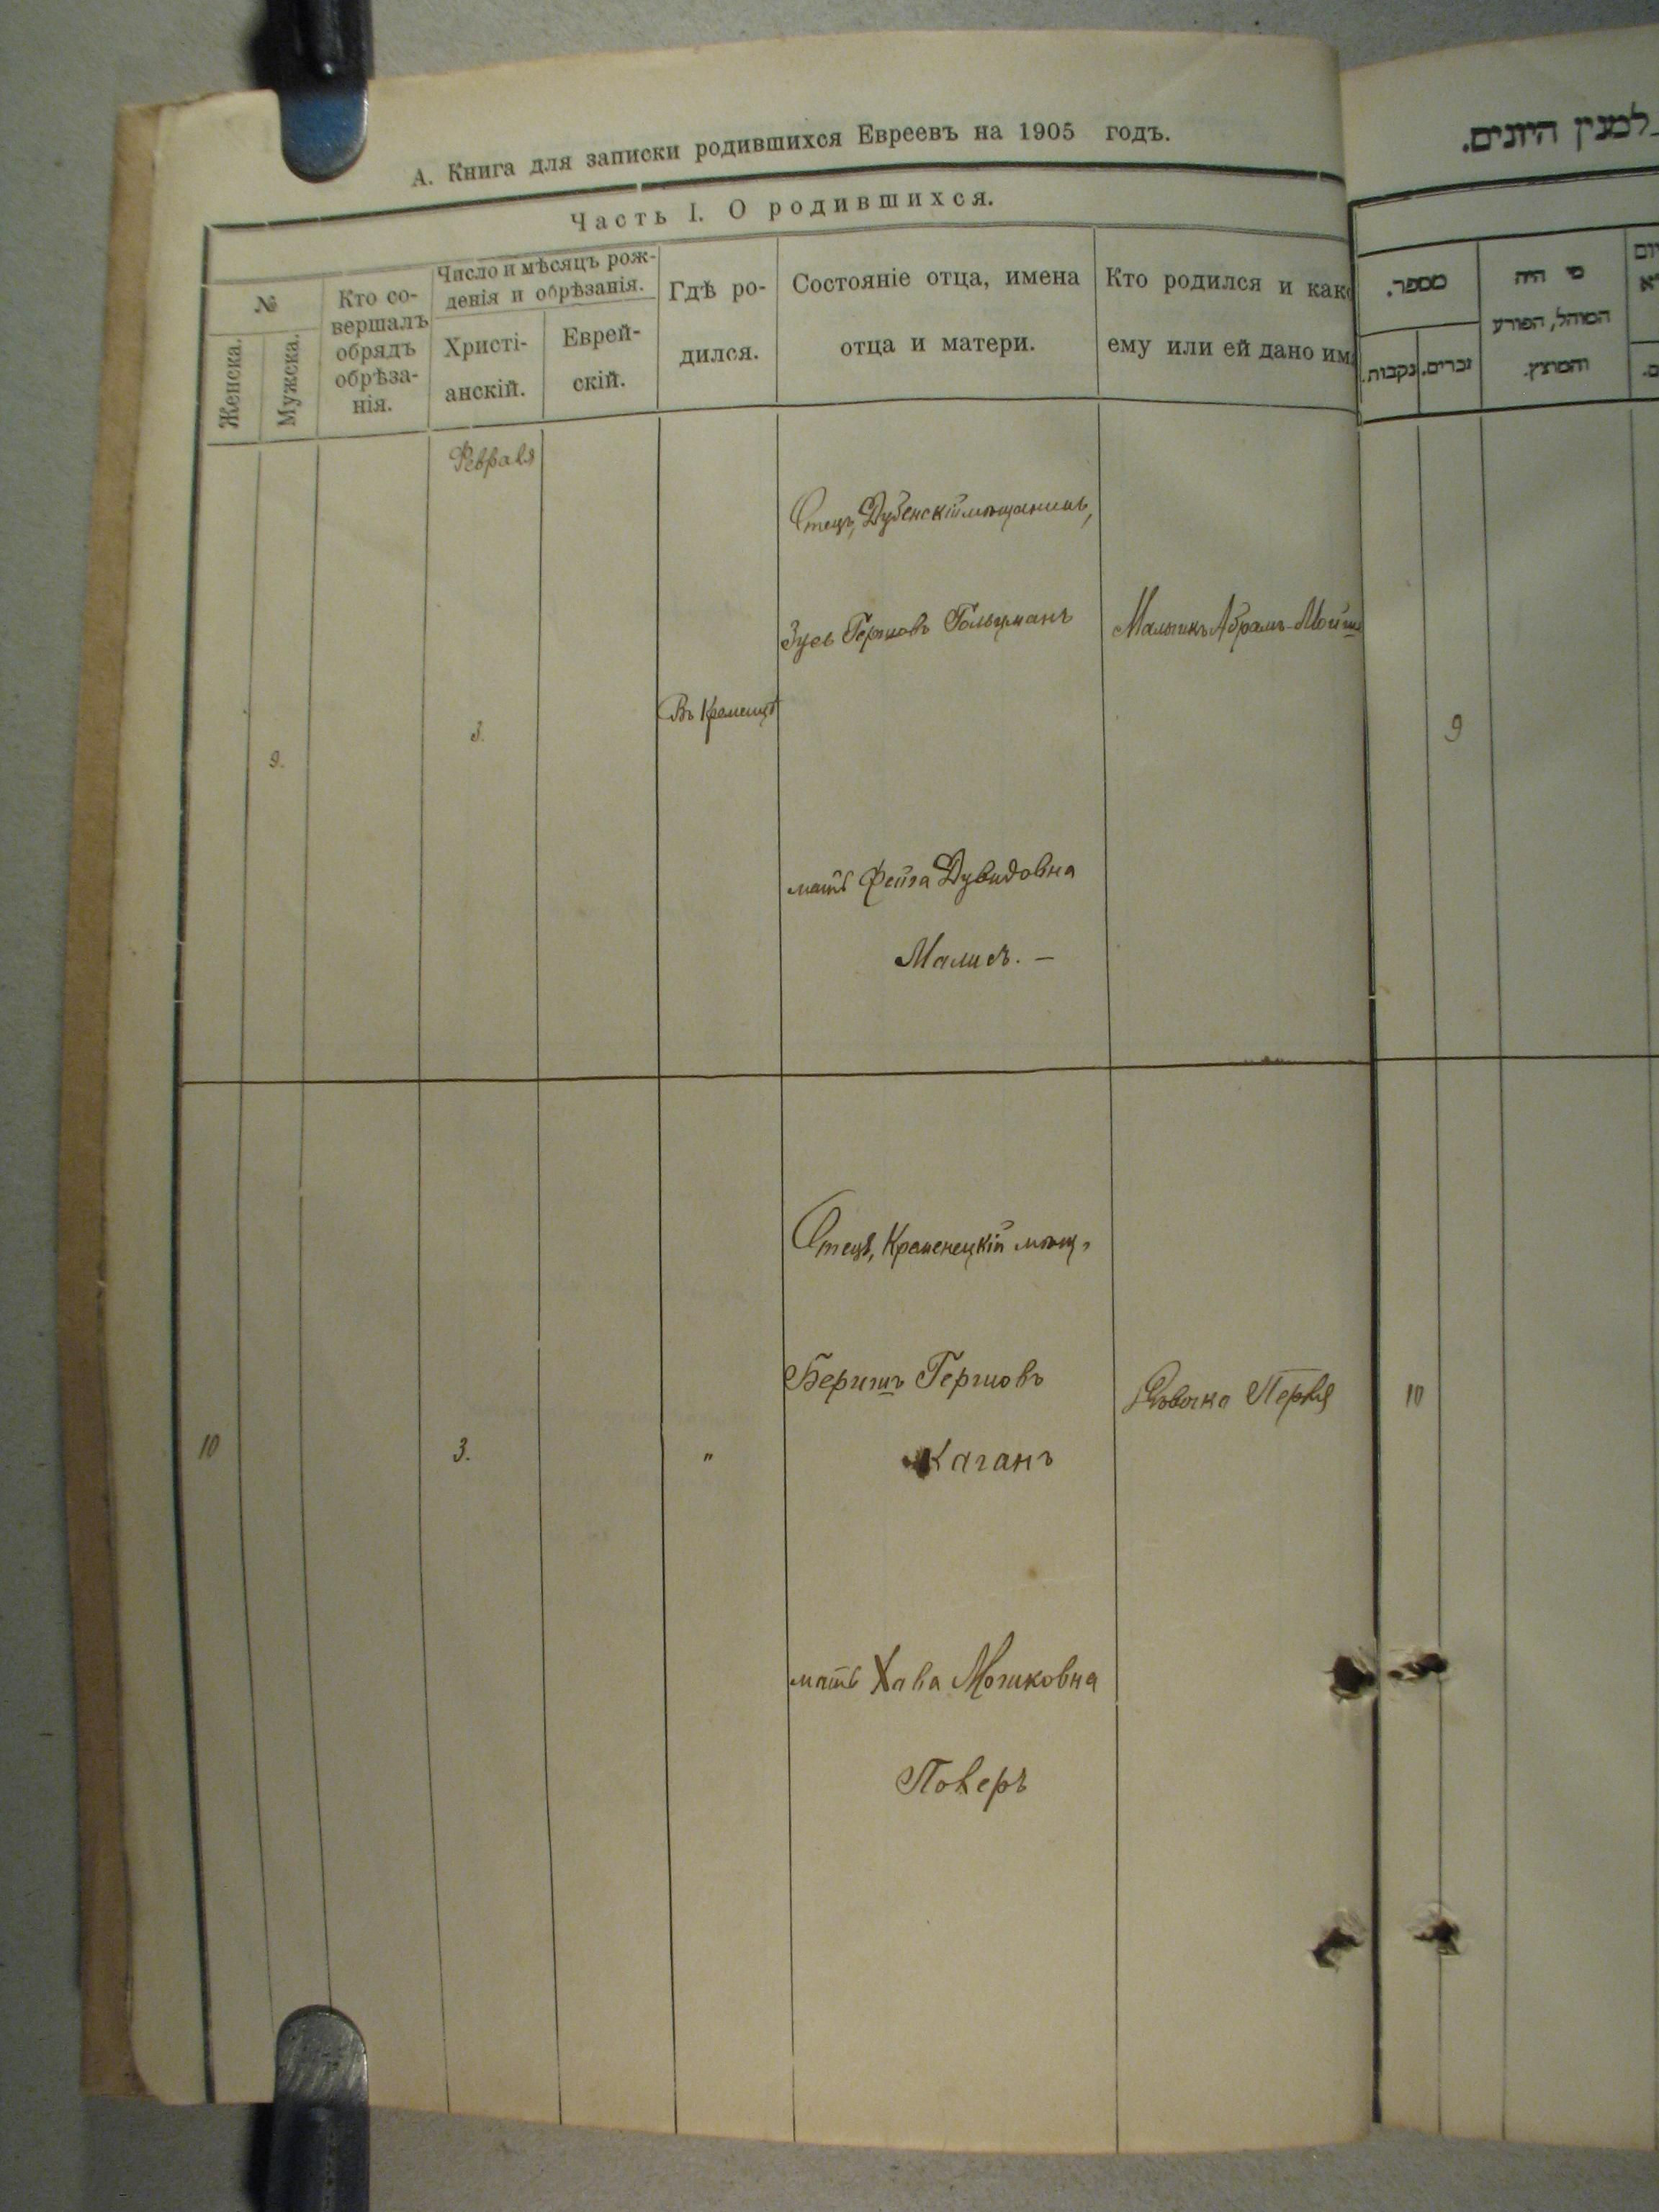 А. Книга для записки родившихся Евреевъ на 1905 годъ.
Часть I. О родившихся.
№
Женска.
Мужска.
Кто со-
вершалъ
обрядъ
обрѣза-
нія.
Число и мѣсяцъ рож-
денія и обрѣзанія.
Христі-
анскій.
Еврей-
скій.
Гдѣ ро-
дился.
Состояніе отца, имена
отца и матери.
Кто родился и како
ему или ей дано им
Февраля
Отецъ, Дубенскій мѣщанинъ,
Зусь Гершовъ Гольцманъ
Мальчикъ Абрамъ-Мойш
Въ Кременцѣ
9.
3.
мать Фейга Дувидовна
Малисъ. —
Отецъ, Кременецкій мѣщ.
Беришъ Гершовъ
Каганъ
Дѣвочка Перля
10
3.
"
мать Хава Мошковна
Поверъ
למנין היונים.
מספר.
נקבות.
זכרים.
מי היה
המוהל, הפורע
והמוצץ.
9
10